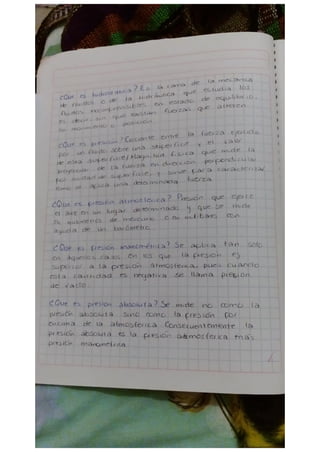 ¿Que es hidrostatica? Es la rama de la mecanica
de fluidos o de la hidráulica que estudia los
fluidos incompresibles en estado de equilibrio.
Es decir, sin que existan fuerzas que alteren
su movimiento o posición.
¿Que es presion? Cociente entre la fuerza ejercida
por un fluido sobre una superficie y el valor
de esta superficie/Magnitud fisica que mide la
proyección de la fuerza en dirección perpendicular
por unidad de superficie, y sirve para caracterizar
como se aplica una determinada fuerza.
¿Que es presión atmosferica? Presion que ejerce
el aire en un lugar determinado y que se mide
en milimetros de mercurio o en milibares con
ayuda de un barómetro.
¿Que es presion manometrica? Se aplica tan solo
en aquellos casos en los que la presión es
superior a la presión atmosferica, pues cuando
esta cantidad es negativa se llama presion
de vacio.
¿Que es presión absoluta? Se mide no como la
presion absoluta sino como la presión por
encima de la atmosferica. Consecuentemente la
presión absoluta es la presión atmosferica más
presión manometrica.